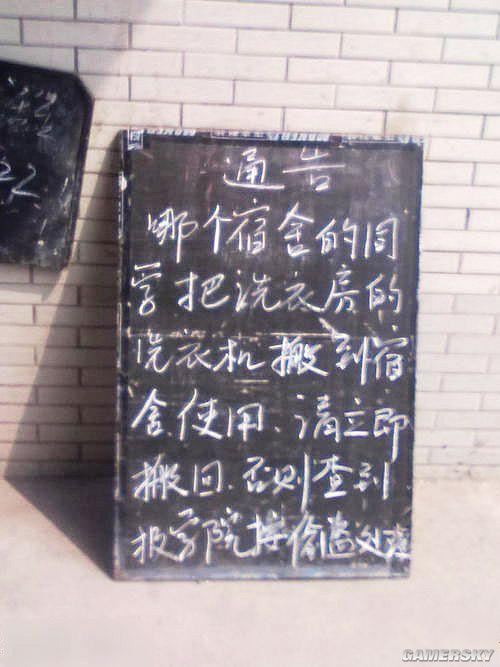 通告
哪个宿舍的同
学把洗衣房的
洗衣机搬到宿
舍使用、请立即
搬回.否则查到
报学院按偷盗处理
GAMERSKY